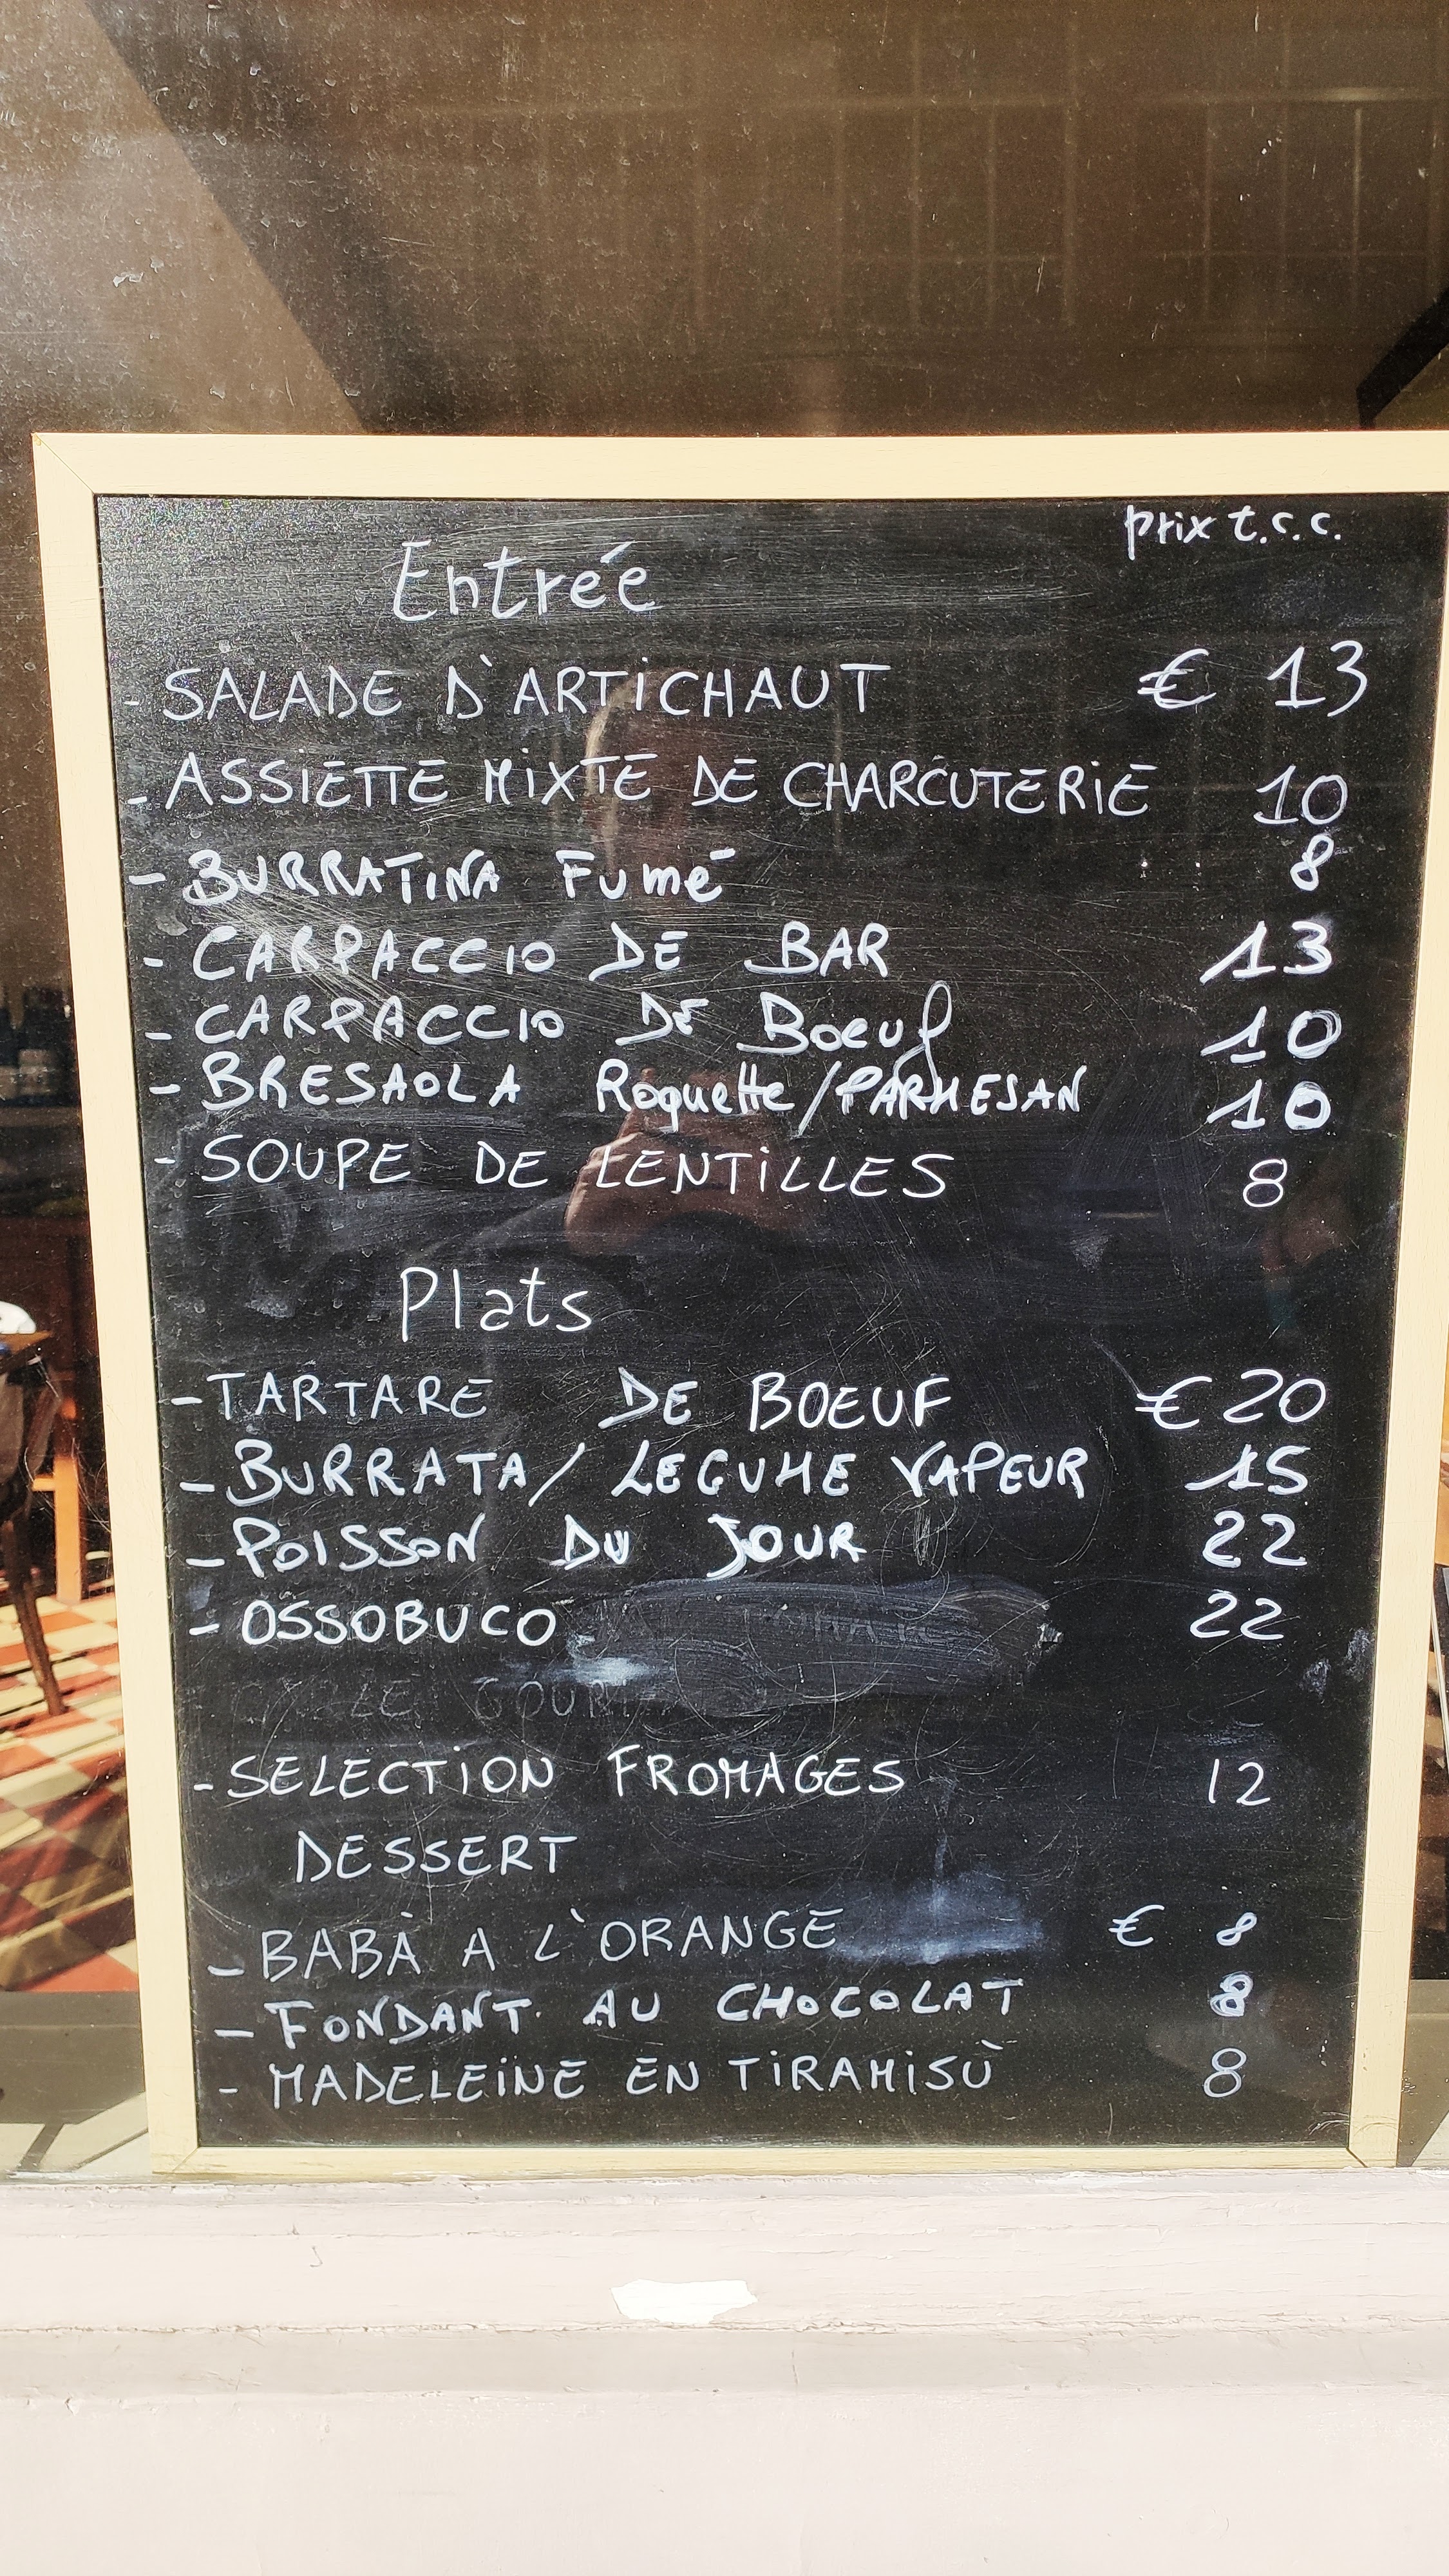 prix t.c.c.
Entrée
- SALADE D'ARTiCHAUT € 13
- ASSIETTE MiXTE DE CHARCUTERiE 10
- BURRATINA Fumé 8
- CARPACCIO DE BAR 13
- CARPACCIO DE Boeuf 10
- BRESAOLA Roquette/PARMESAN 10
- SOUPE DE LENTiLLES 8
Plats
- TARTARE DE BOEUF € 20
- BURRATA/ LEGUME VAPEUR 15
- POISSON DU JOUR 22
- OSSOBUCO 22
GOUR
- SELECTiON FROMAGES 12
DESSERT
- BABÀ A L'ORANGE € 8
- FONDANT AU CHOCOLAT 8
- MADELEiNE EN TiRAMiSÙ 8